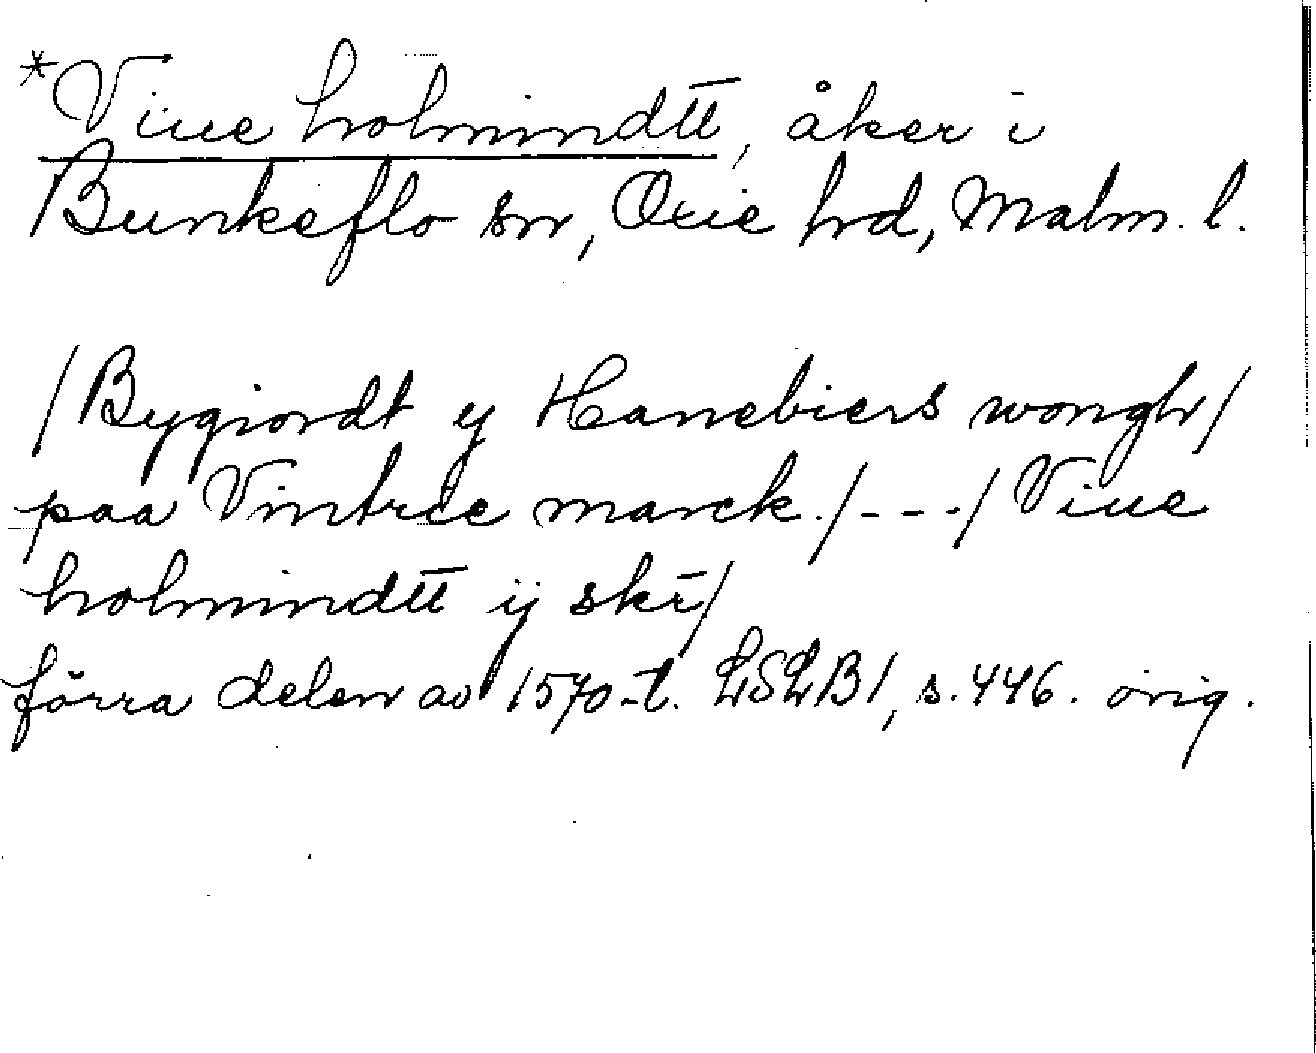 *Viue holmindtt, åker i
Bunkeflo sn, Oxie hd, Malm. l.
/Bygiordt y Hanebiers wongh/
paa Vintree marck./---/ Viue
holmindtt ij skr/
förra delen av 1570-t. LSLB1, s.446. orig.